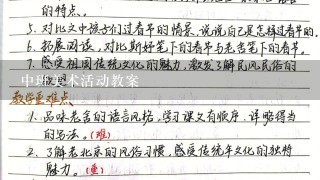 的特点。
5. 对比文中孩子们过春节的情景,说说自己是怎样过春节的。
6. 拓展阅读,对比斯好笔下的春节与老舍笔下的春节。
7. 感受祖国传统文化的魅力,激发了解民风民俗的
中班美术活动教案
教学重难点
1. 品味老舍的语言风格,学习课文有顺序、详略得当
的写法。(难)
2. 了解老北京的风俗习惯,感受传统年文化的独特
魅力。(重)